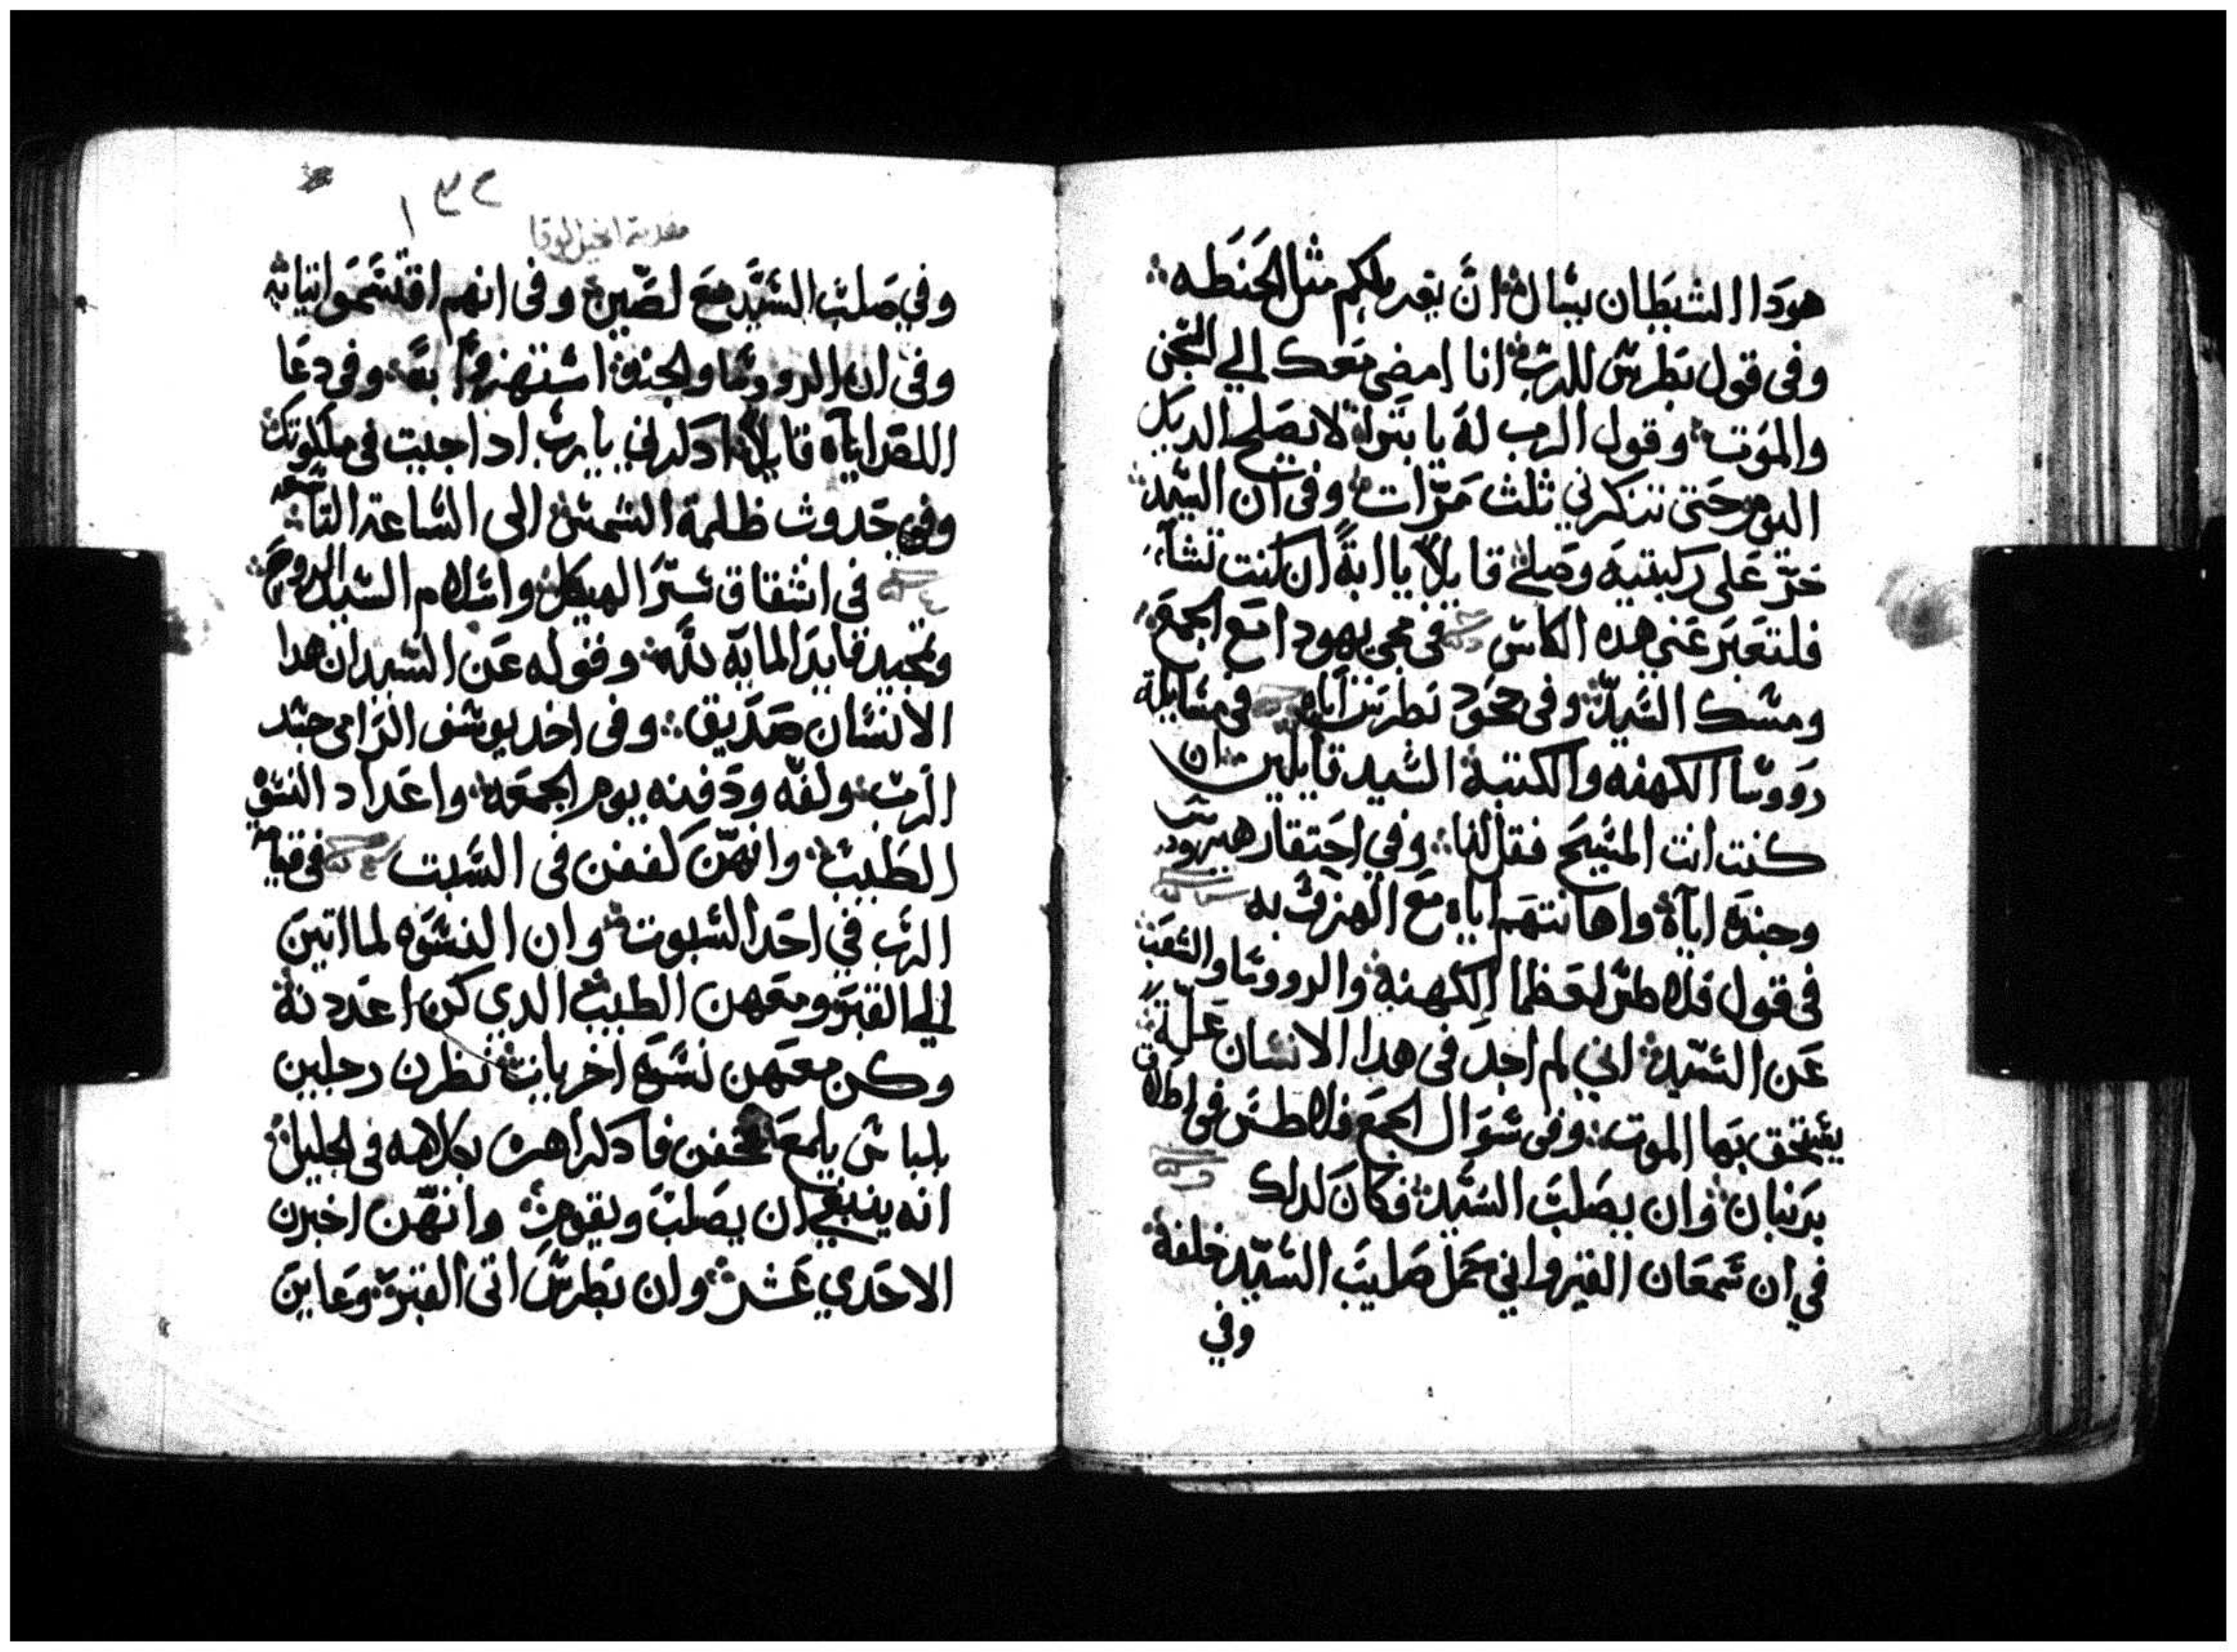 هودا الشيطان يسال ان يغربلكم مثل الحنطه
وفى قول بطرس للرب انا امضى معك الي السجن
والموت وقول الرب له يا بترا لا يصيح الديك
اليوم حتى تنكرني ثلث مرات وفى ان السيد
خر على ركبتيه وصلى قايلا يا ابة ان كنت تشآ
فلتعبر عني هذه الكاس في مجى يهودا مع الجمع
ومسك السيد وفى جحود بطرس اياه في مسايلة
رووسا الكهنه والكتبة السيد قايلين ان
كنت انت المسيح فقل لنا وفي احتقار هيرودس
وجنده اياه واهانتهم اياه مع الهزو به
فى قول فلاطس لعظما الكهنة والرووسا والشعب
عن السيد اني لم اجد فى هدا الانسان علة
يستحق بها الموت وفى سوال الجمع فلاطس فى اطلاق
برنبان وان يصلب السيد فكان لدلك
في ان سمعان القيرواني حمل صليب السيد خلفه
وفي
١٣٢
مقدمة انجيل لوقا
وفي صلب السيد مع لصين وفى انهم اقتسموا ثيابه
وفى ان الرووسا والجند استهزوا به وفى دعا
اللص اياه قايلا ادكرني يا رب ادا جيت في ملكوتك
وفي حدوث ظلمة الشمس الى الساعة التاسعه
فى انشقاق ستر الهيكل واسلام السيد الروح
وتمجيد قايد المايه لله وقوله عن السيد ان هدا
الانسان صديق وفى اخد يوسف الرامى جسد
الرب ولفه ودفنه يوم الجمعه واعداد النسوه
الطيب وانهن كففن فى السبت فى قيامة
الرب في احد السبوت وان النسوه لما اتين
الي القبر ومعهن الطيب الدي كن اعددنه
وكن معهن نسوه اخريات نظرن رجلين
بلباس يلمع فخفن فادكراهن بكلامه فى الجليل
انه ينبغي ان يصلب ويقوم وانهن اخبرن
الاحدي عشر وان بطرس اتى القبر وعاين